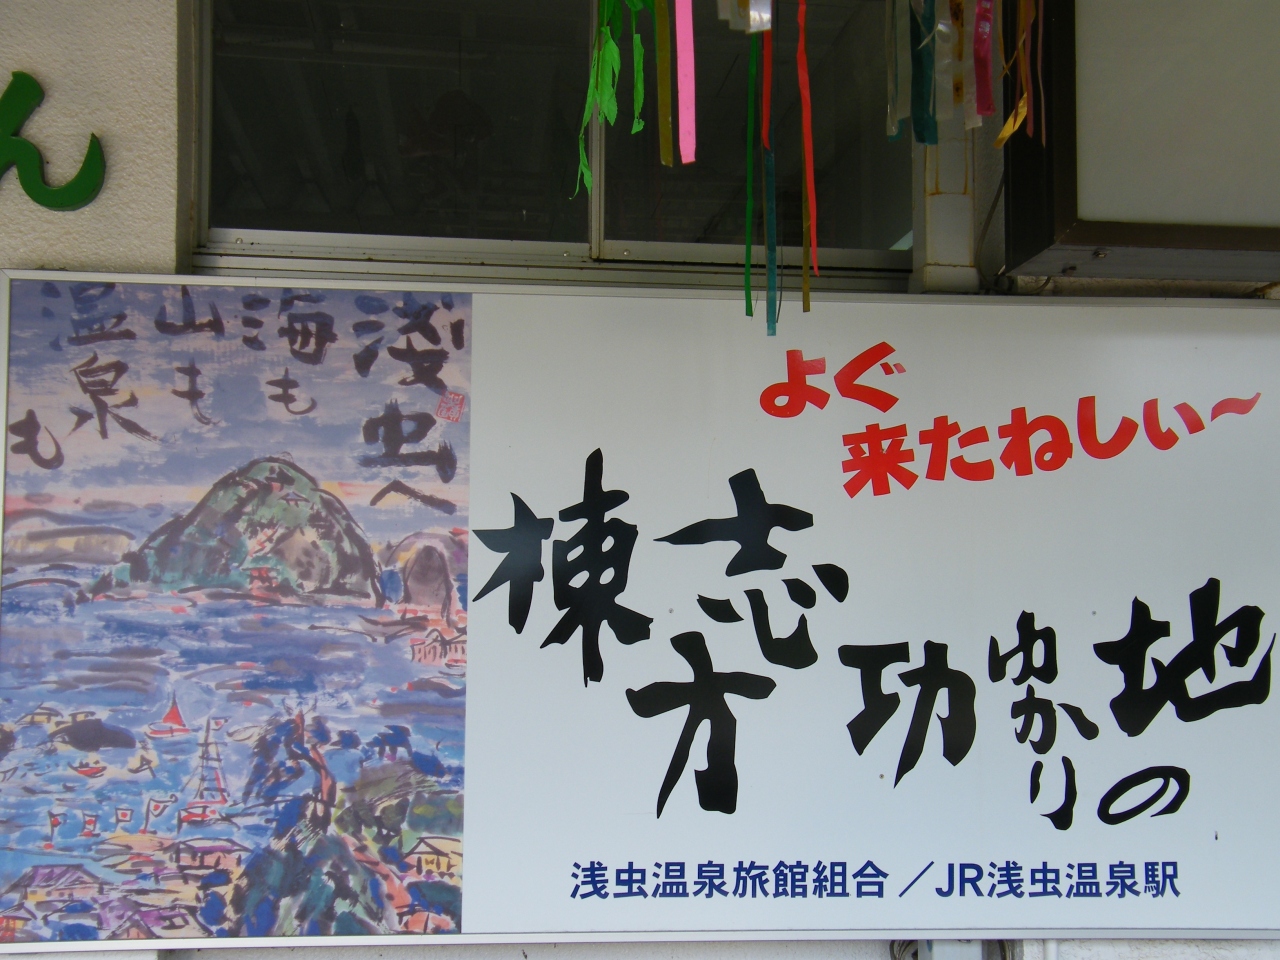 ん
淺虫へ
海も
山も
温泉も
よぐ
来たねしぃ〜
棟方志功ゆかりの地
浅虫温泉旅館組合／JR浅虫温泉駅